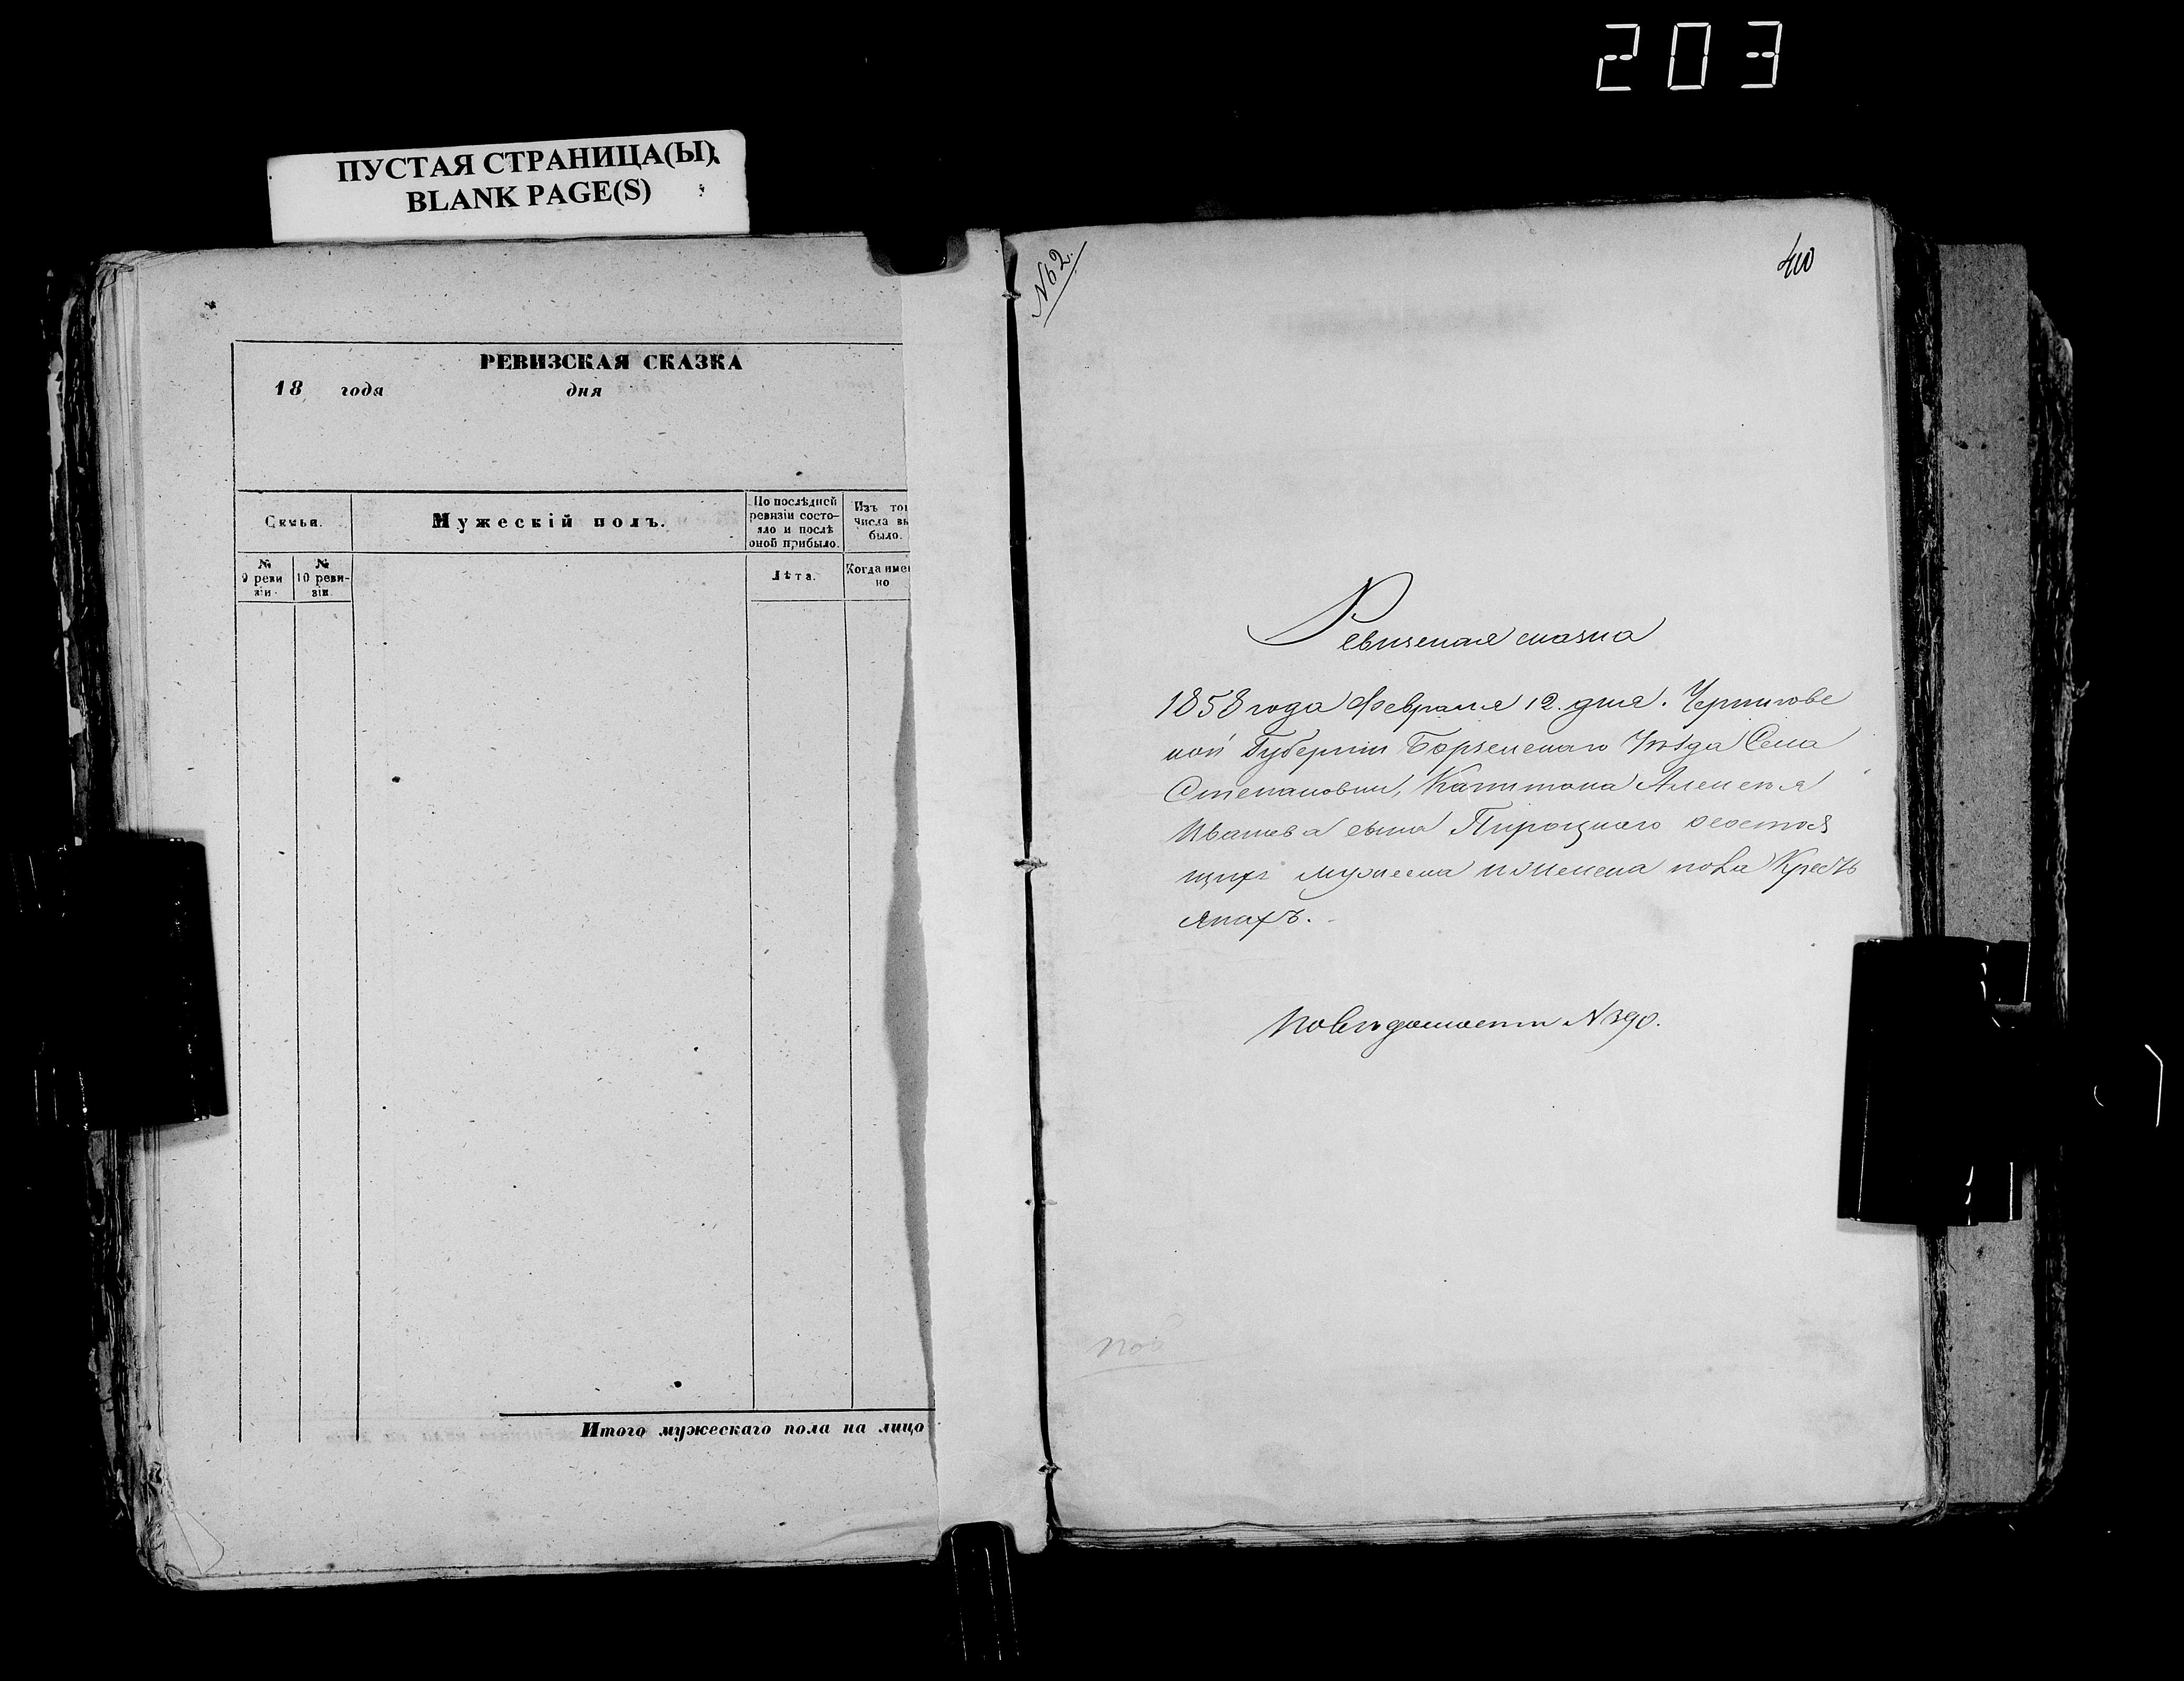 203
ПУСТАЯ СТРАНИЦА(Ы)
BLANK PAGE(S)
РЕВИЗСКАЯ СКАЗКА
18 года дня
Семья.
Мужескій полъ.
По послѣдней
ревизіи состо-
яло и послѣ
оной прибыло.
Изъ тог
числа вы
было.
№
9 реви
зіи.
№
10 реви-
зіи.
Лѣта.
Когда имен
но
Итого мужескаго пола на лицо
№ 2.
410
Ревизская сказка
1858 года Февраля 12. дня. Чернигов
кой Губерніи Борзенскаго Уѣзда Села
Степановки, Капитана Алексѣя
Иванова сына Пироцкаго о состоя
щихъ мужеска и женска пола Кресть
янахъ.
По вѣдомости № 390.